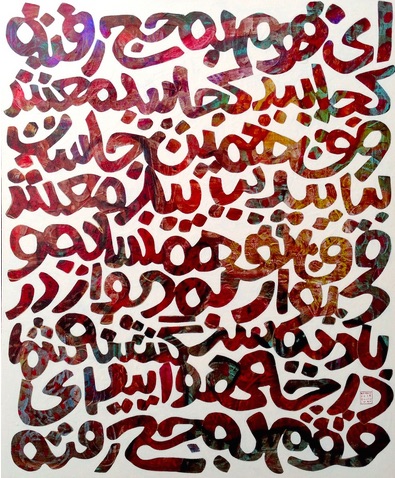 ای قوم به حج رفته
کجایید کجایید معش
وق همین جاست
بیایید بیایید معش
وق تو همسایه و
دیوار به دیوار در
بادیه سرگشته شما
در چه هوایید ای
قوم به حج رفته